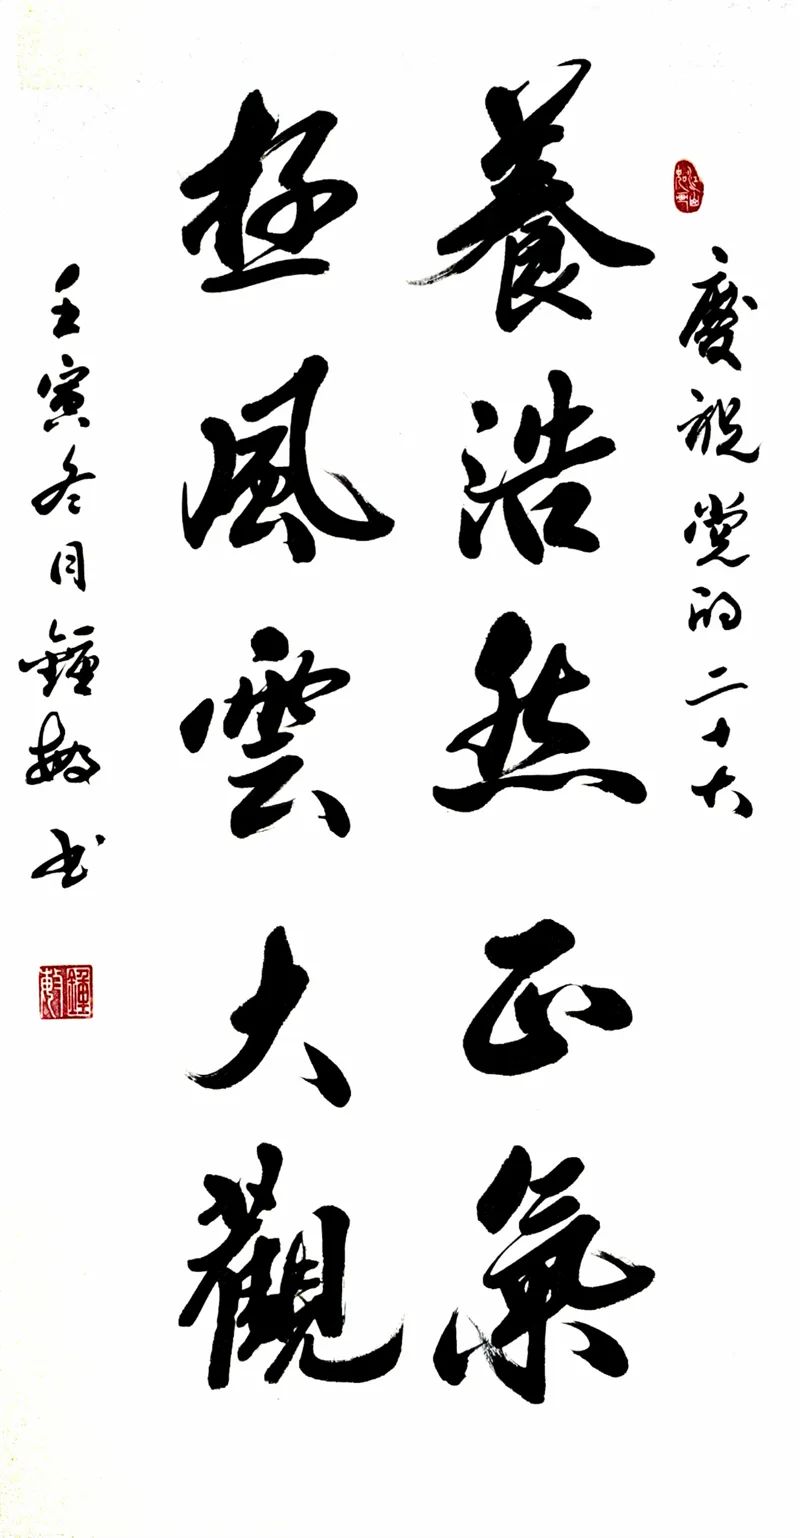 慶祝党的二十大
養浩然正氣
極風雲大觀
壬寅冬月鍾敏书
鍾敏